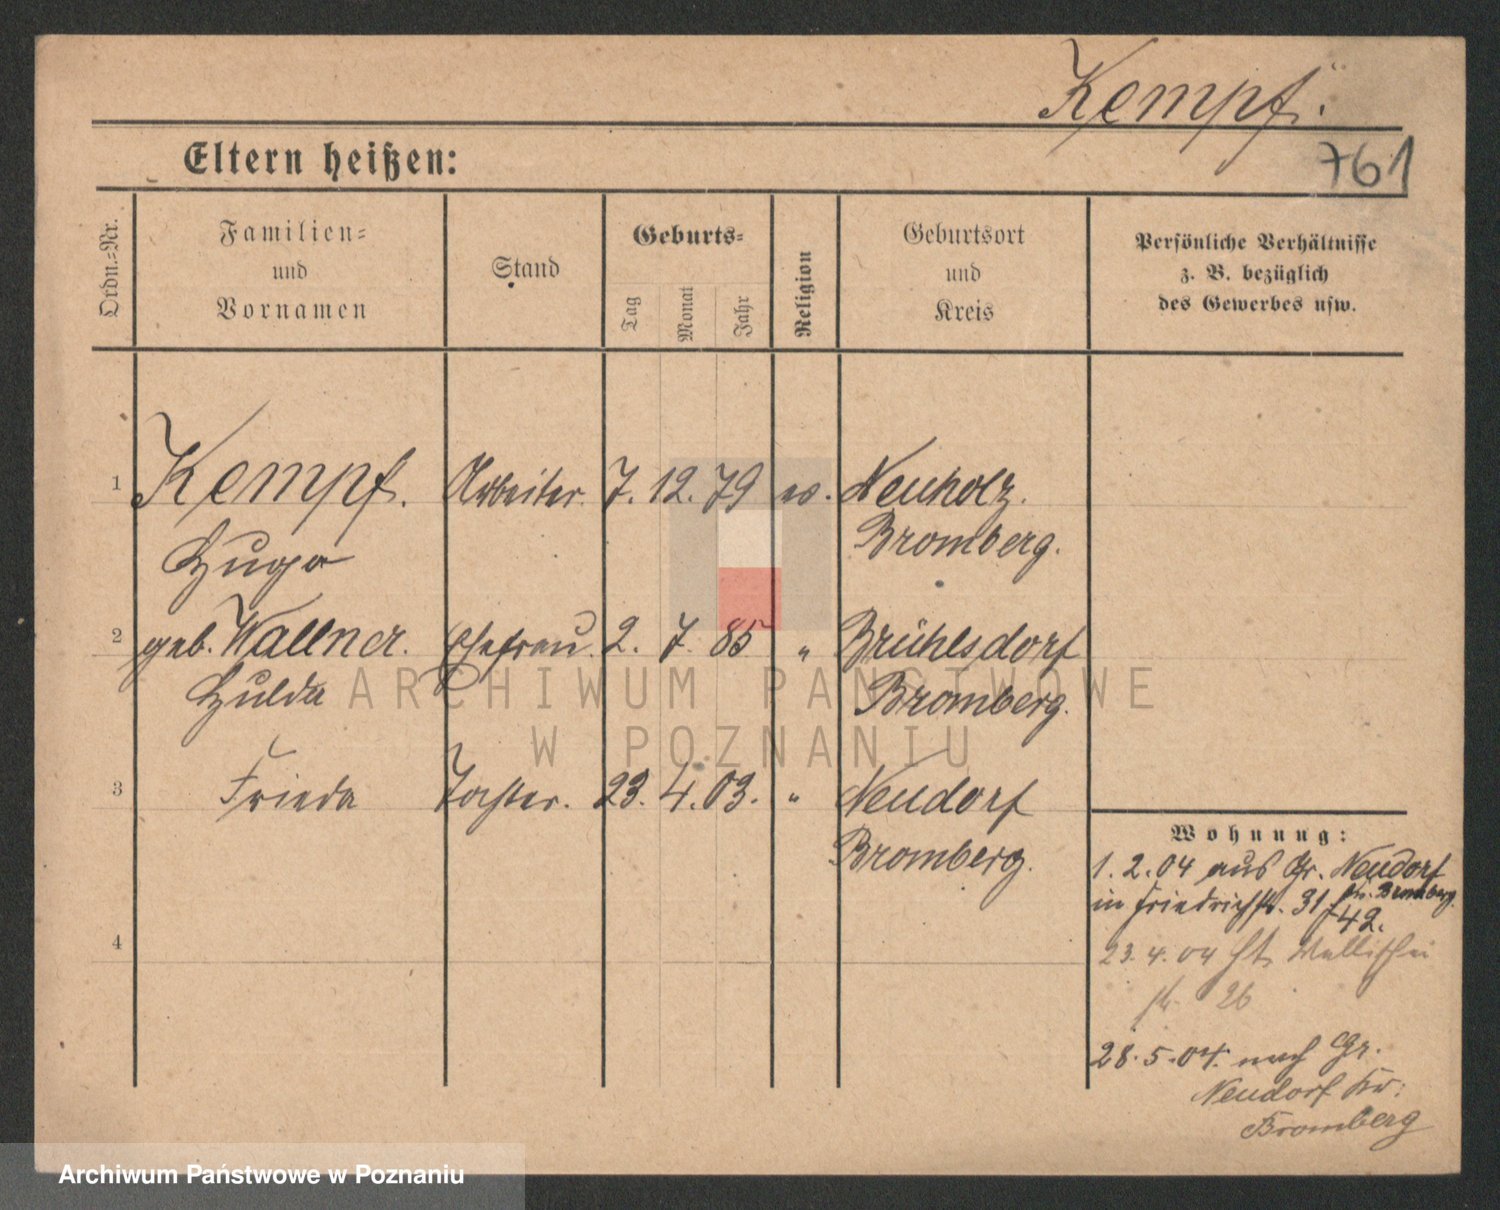 Kempf.
761
Eltern heißen:
Ordn.-Nr.
Familien-
und
Vornamen
Stand
Geburts-
Tag
Monat
Jahr
Religion
Geburtsort
und
Kreis
Persönliche Verhältnisse
z. B. bezüglich
des Gewerbes usw.
1 Kempf. Arbeiter. 7. 12. 79 ev. Neuholz.
Hugo Bromberg.
2 geb. Wallner. Ehefrau. 2. 7. 85 " Brühlsdorf
Hulda Bromberg.
3 Frieda Tochter. 23. 4. 03. " Neudorf
Bromberg.
4
Wohnung:
1. 2. 04 aus Gr. Neudorf
Kr. Bromberg.
in Friedrichstr. 31
42.
23. 4. 04 Wallischei
str. 26
28. 5. 04. nach Gr.
Neudorf Kr.
Bromberg
ARCHIWUM PAŃSTWOWE
W POZNANIU
Archiwum Państwowe w Poznaniu